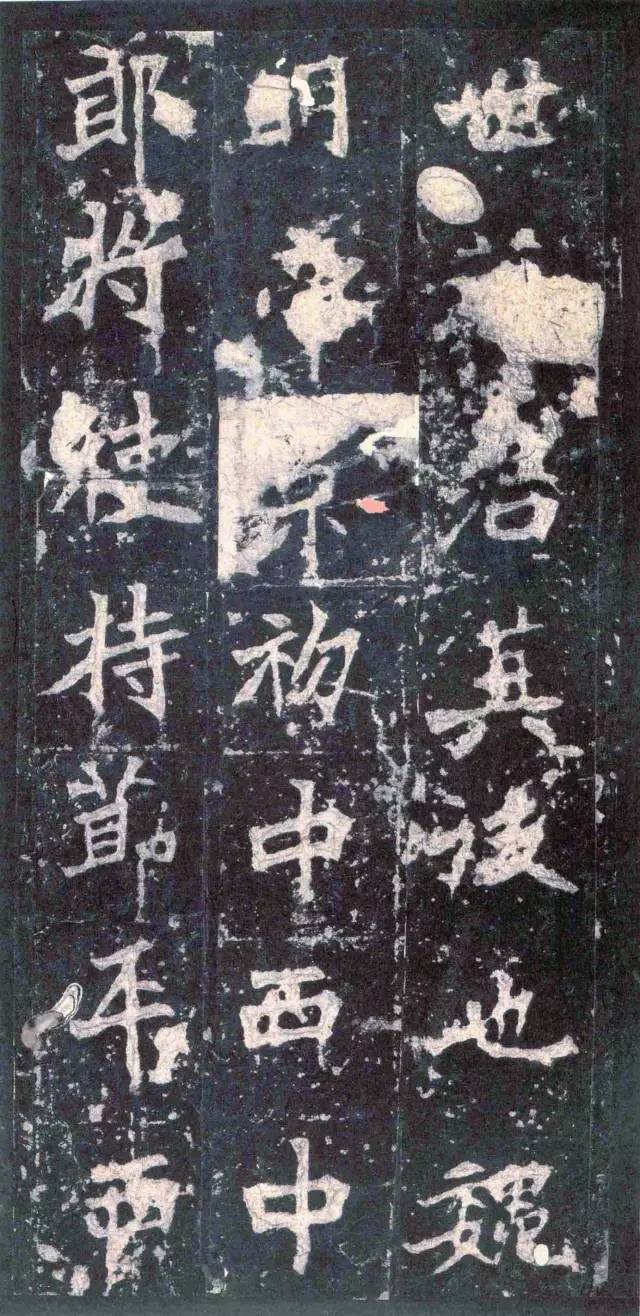 世君其後也魏
明帝初中西中
郎將使持節平西